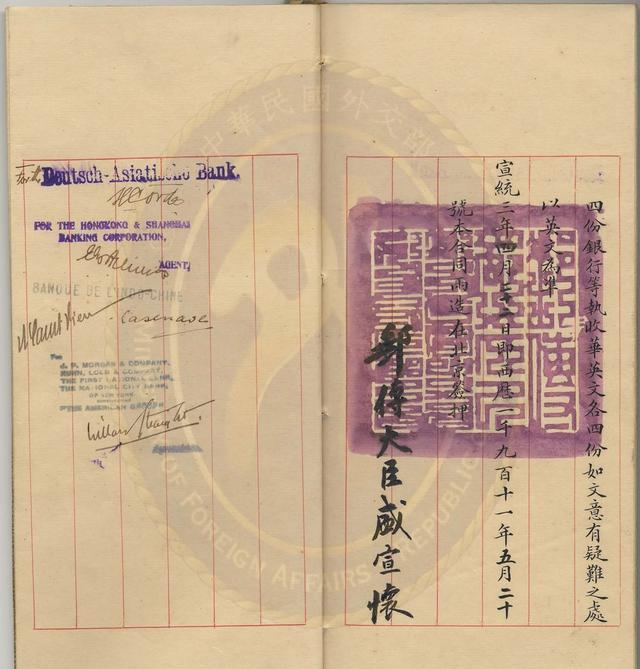 四份銀行等執收華英文各四份如文意有疑難之處
以英文為準
宣統三年四月二十二日即西歷一千九百十一年五月二十
號本合同兩造在北京簽押
郵傳大臣盛宣懷
For the Deutsch-Asiatische Bank.
H Cordes
FOR THE HONGKONG & SHANGHAI
BANKING CORPORATION,
AGENT,
BANQUE DE L'INDO-CHINE
Casenave
For
J. P. MORGAN & COMPANY,
KUHN, LOEB & COMPANY,
THE FIRST NATIONAL BANK,
THE NATIONAL CITY BANK,
OF NEW YORK.
THE AMERICAN GROUP
中華民國外交部
OF FOREIGN AFFAIRS REPUBLIC